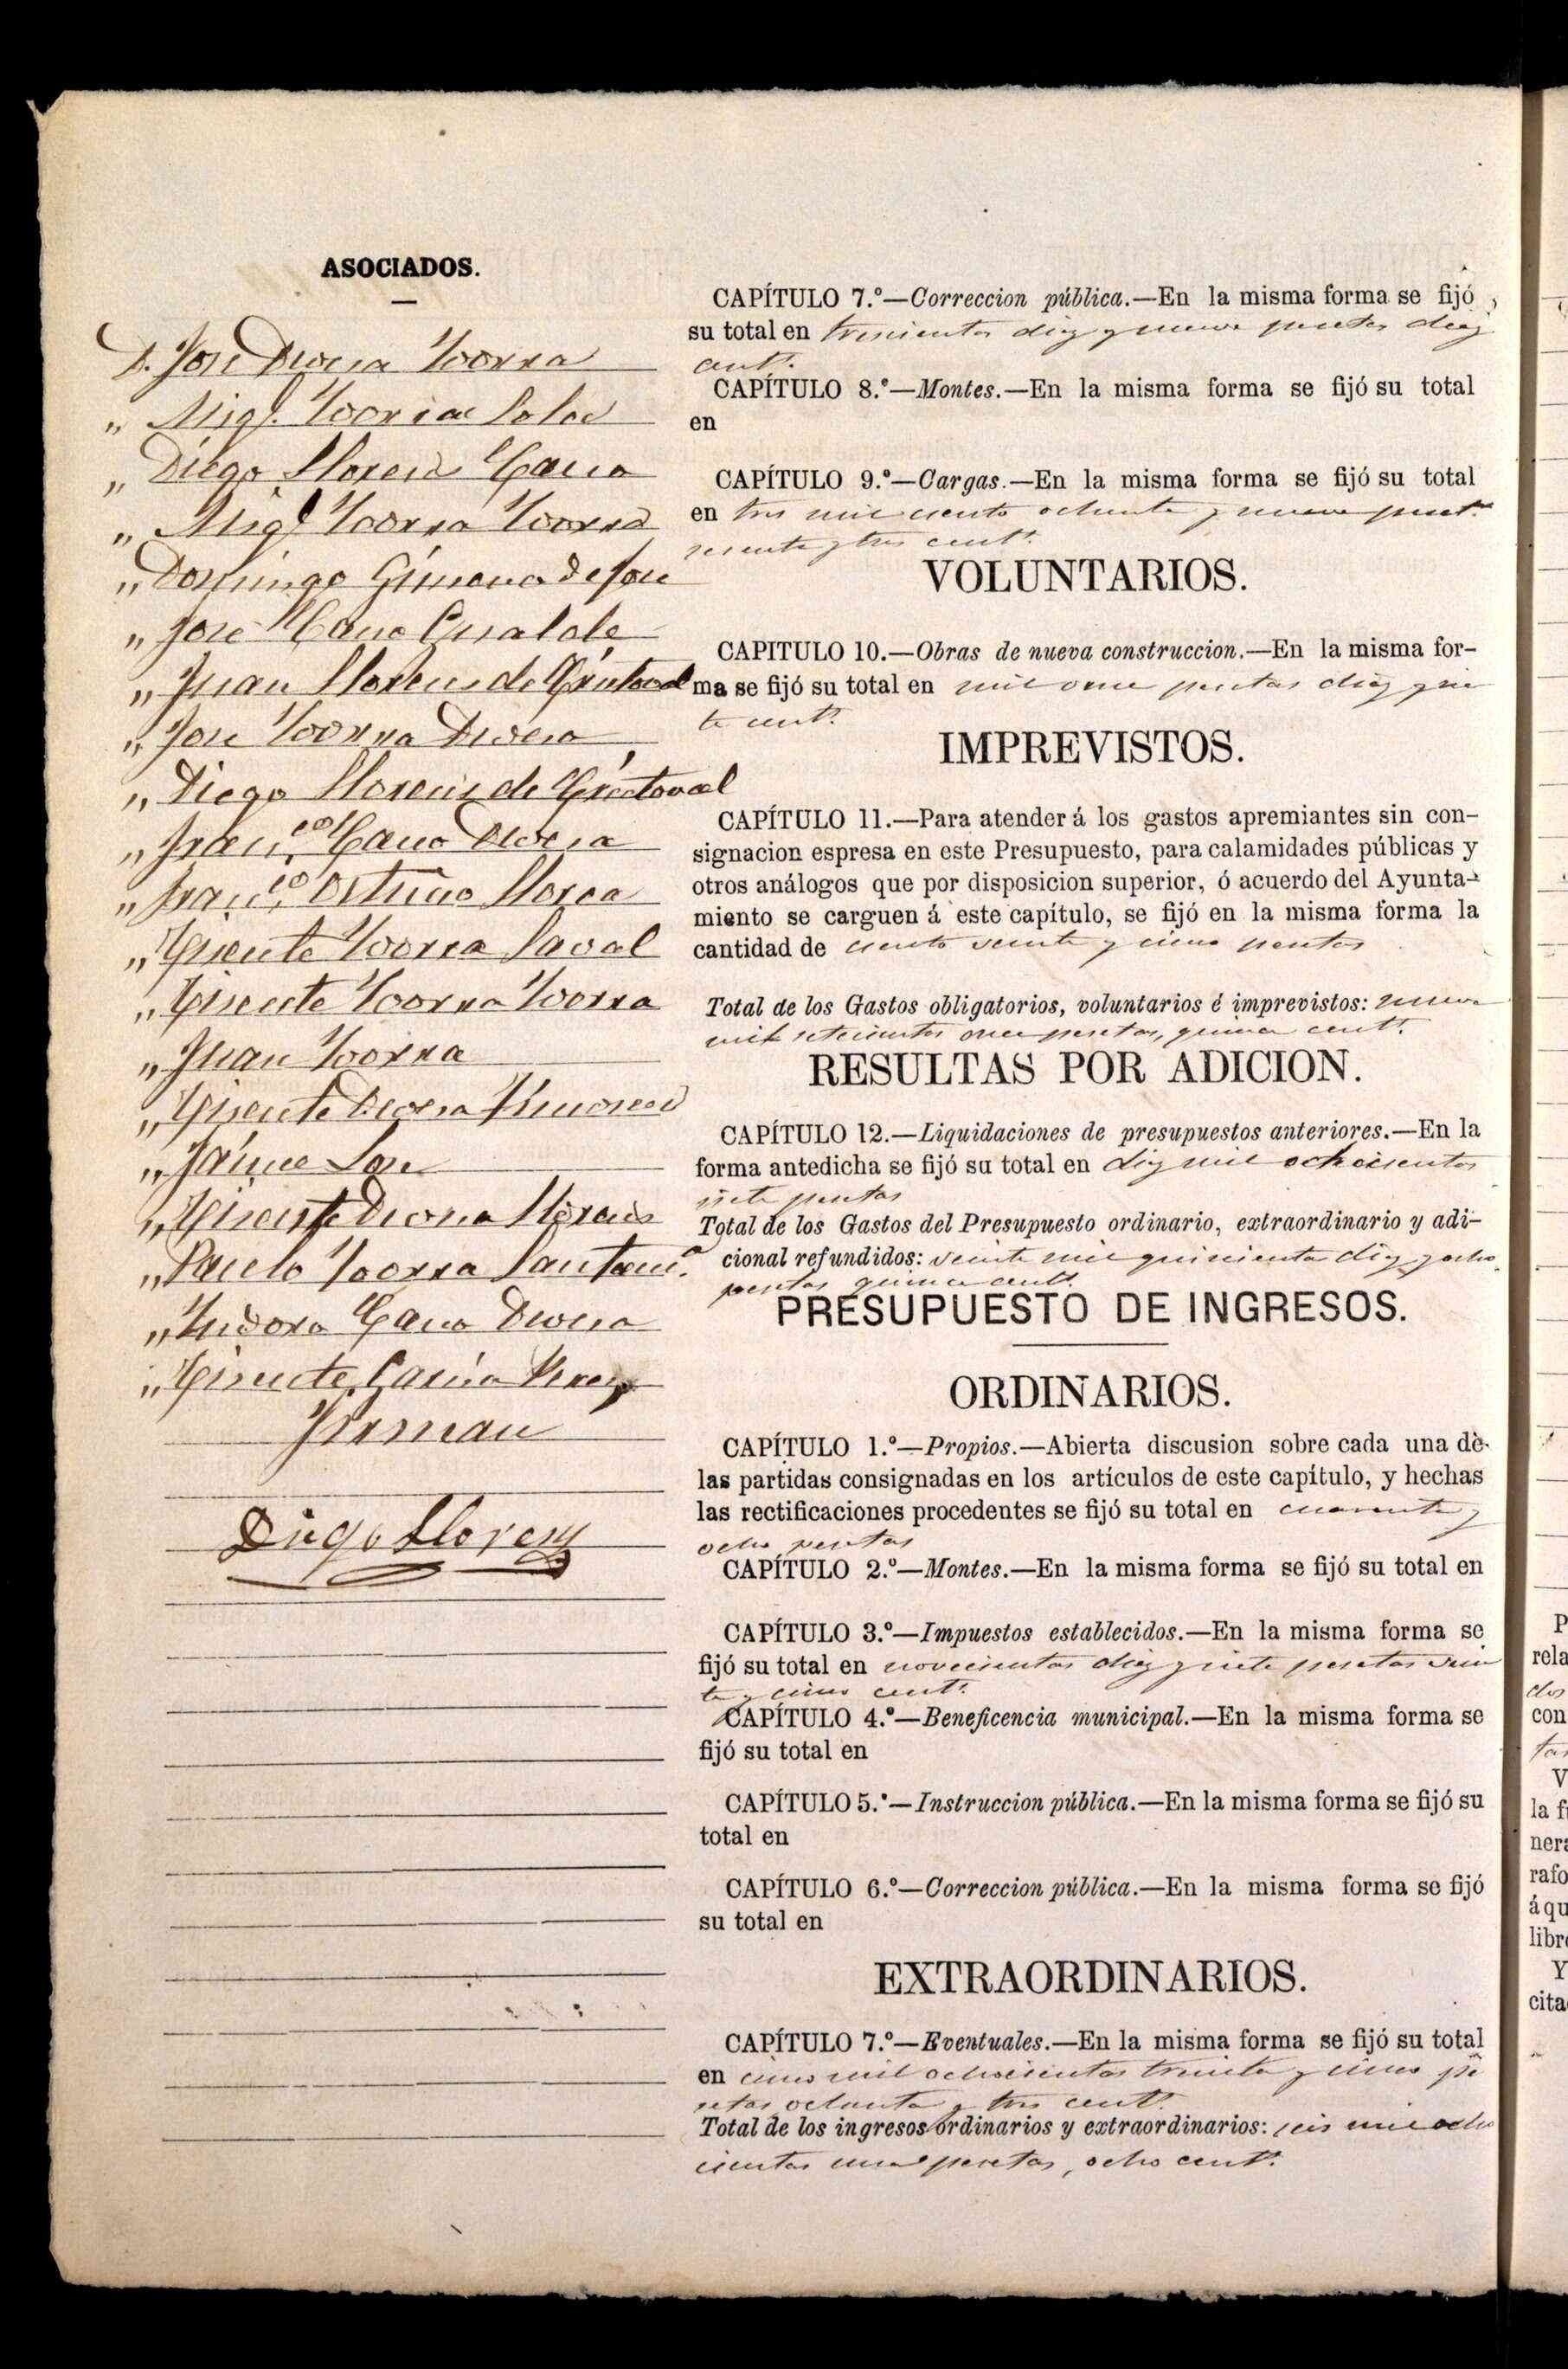 ASOCIADOS.
D. José Devesa Yvorra
" Mig.l Yvorra
" Diego Llorens Cano
" Mig.l Yvorra Yvorra
" Domingo Gimeno de José
" José Cano
" Juan Llorens de Cristoval
" José Yvorra Devesa
" Diego Llorens de Cristoval
" Fran.co Cano Devesa
" Fran.co Ortuño Llorca
" Vicente Yvorra Saval
" Vicente Yvorra Yvorra
" Juan Yvorra
" Vicente Devesa
" Jaime
" Vicente Devesa Llorens
" Yvorra
" Ysidoro Cano Devesa
" Vicente Garcia Perez
Firman
Diego Llorens
CAPÍTULO 7.º—Correccion pública.—En la misma forma se fijó
su total en trescientas diez y nueve pesetas diez
cent.s
CAPÍTULO 8.º—Montes.—En la misma forma se fijó su total
en
CAPÍTULO 9.º—Cargas.—En la misma forma se fijó su total
en tres mil ciento ochenta y nueve peset.s
sesenta y tres cent.s
VOLUNTARIOS.
CAPITULO 10.—Obras de nueva construccion.—En la misma for-
ma se fijó su total en mil once pesetas diez y sie
te cent.s
IMPREVISTOS.
CAPÍTULO 11.—Para atender á los gastos apremiantes sin con-
signacion espresa en este Presupuesto, para calamidades públicas y
otros análogos que por disposicion superior, ó acuerdo del Ayunta-
miento se carguen á este capítulo, se fijó en la misma forma la
cantidad de ciento veinte y cinco pesetas
Total de los Gastos obligatorios, voluntarios é imprevistos: nueve
mil setecientas once pesetas, quince cent.s
RESULTAS POR ADICION.
CAPÍTULO 12.—Liquidaciones de presupuestos anteriores.—En la
forma antedicha se fijó su total en diez mil ochocientas
siete pesetas
Total de los Gastos del Presupuesto ordinario, extraordinario y adi-
cional refundidos: veinte mil quinientas diez y ocho
pesetas quince cent.s
PRESUPUESTO DE INGRESOS.
ORDINARIOS.
CAPÍTULO 1.º—Propios.—Abierta discusion sobre cada una de
las partidas consignadas en los artículos de este capítulo, y hechas
las rectificaciones procedentes se fijó su total en cuarenta y
ocho pesetas
CAPÍTULO 2.º—Montes.—En la misma forma se fijó su total en
CAPÍTULO 3.º—Impuestos establecidos.—En la misma forma se
fijó su total en novecientas diez y siete pesetas vein
te y cinco cent.s
CAPÍTULO 4.º—Beneficencia municipal.—En la misma forma se
fijó su total en
CAPÍTULO 5.º—Instruccion pública.—En la misma forma se fijó su
total en
CAPÍTULO 6.º—Correccion pública.—En la misma forma se fijó
su total en
EXTRAORDINARIOS.
CAPÍTULO 7.º—Eventuales.—En la misma forma se fijó su total
en cinco mil ochocientas treinta y cinco pe
setas ochenta y tres cent.s
Total de los ingresos ordinarios y extraordinarios: seis mil ocho
cientas una pesetas, ocho cent.s